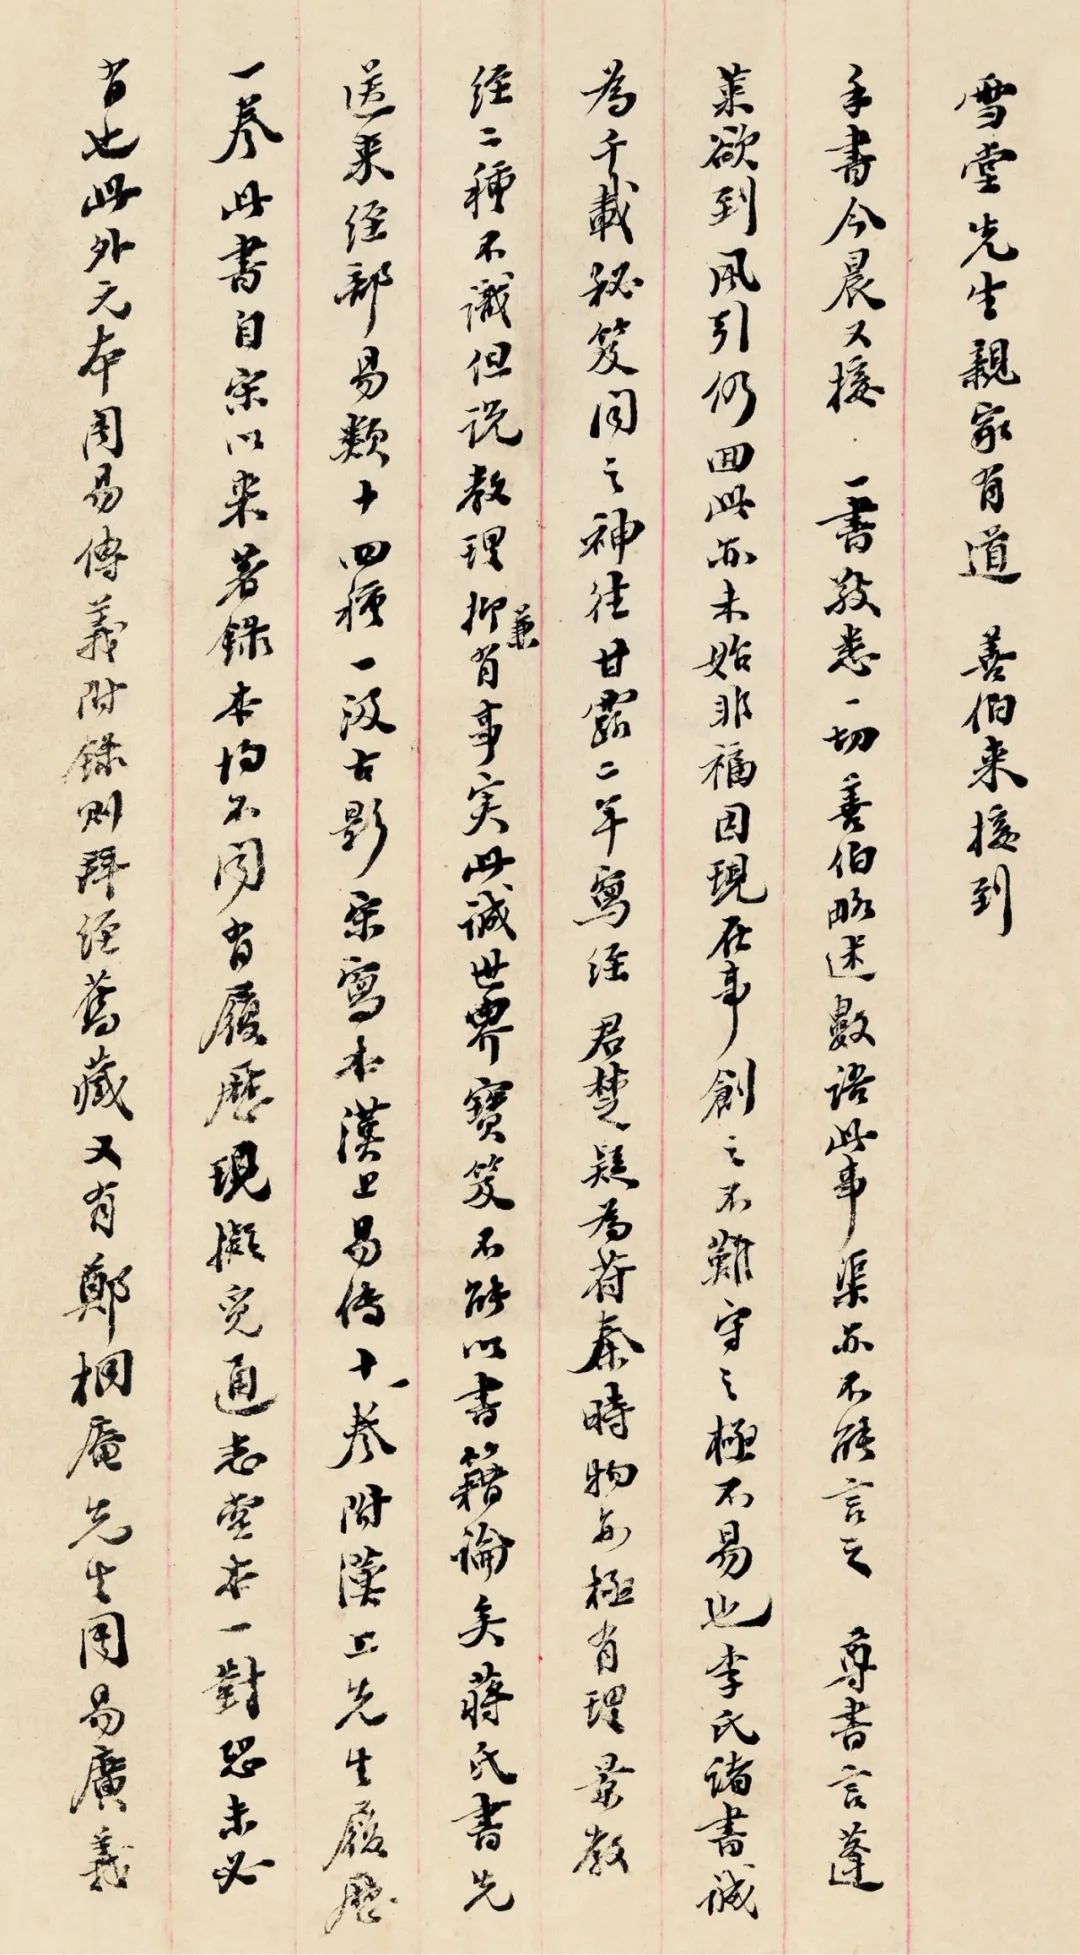 雪堂先生親家有道　善伯來接到
手書今晨又接　一書敬悉一切善伯略述數語此事渠亦不能言之　尊書言蓬
萊欲到風引仍回此亦未始非福因現在事創之不難守之極不易也李氏諸書誠
為千載秘笈聞之神往甘露二年寫經君楚疑為苻秦時物亦極有理景教
經二種不識但說教理抑兼有事实此誠世界寶笈不能以書籍論矣蔣氏書先
送來經部易類十四種一汲古影宋寫本漢上易傳十一卷附漢上先生履歷
一卷此書自宋以来著錄本均不聞有履歷現擬覓通志堂本一對恐未必
有也此外元本周易傳義附錄則拜經舊藏又有鄭桐庵先生周易廣義